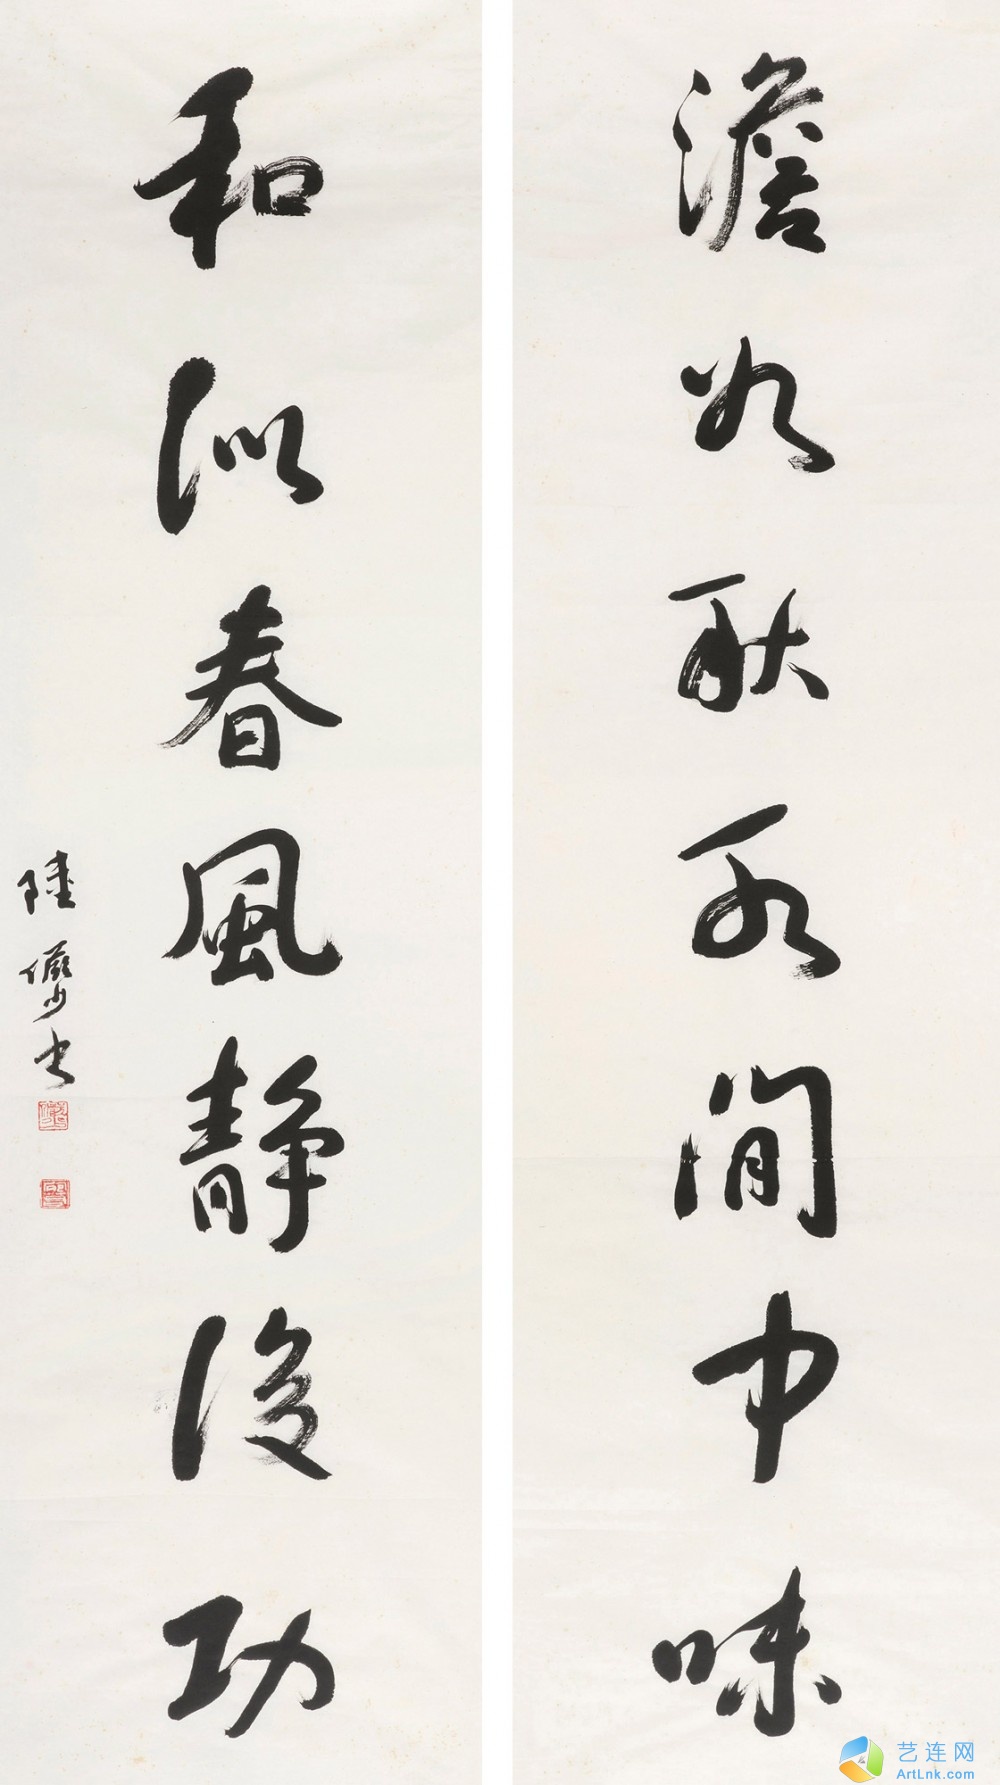 澹如秋水閒中味
和似春風靜後功
陸儼少書
艺连网
ArtLnk.com